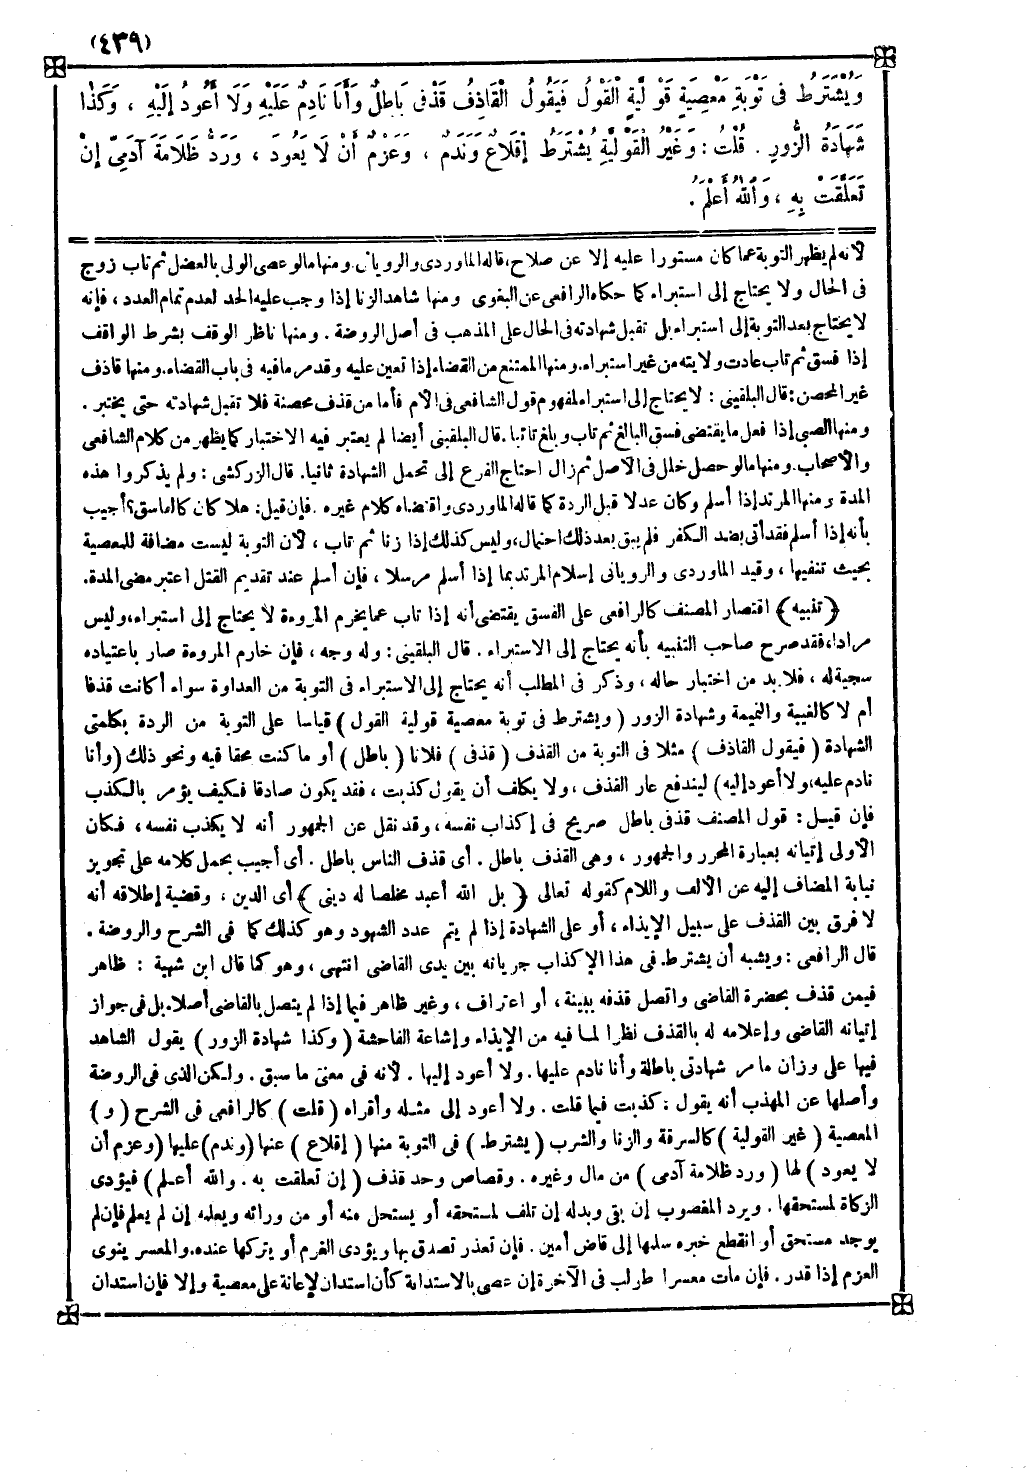 (٤٣٩)
وَيُشْتَرَطُ فى تَوْبَةِ مَعْصِيَةٍ قَوْلِيَّةٍ الْقَوْلُ فَيَقُولُ الْقَاذِفُ قَذْفى بَاطِلٌ وَأَنَا نَادِمٌ عَلَيْهِ وَلَا أَعُودُ إِلَيْهِ ، وَكَذَا
شَهَادَةُ الزُّورِ . قُلْتُ : وَغَيْرُ الْقَوْلِيَّةِ يُشْتَرَطُ إِقْلَاعٌ وَنَدَمٌ ، وَعَزْمٌ أَنْ لَا يَعُودَ ، وَرَدُّ ظَلَامَةَ آدَمِىٍّ إِنْ
تَعَلَّقَتْ بِهِ ، وَاللهُ أَعْلَمُ .
لأنه لم يظهر التوبة عما كان مستورا عليه إلا عن صلاح ، قاله الماوردى والرويانى . ومنها مالو عصى الولى بالعضل ثم تاب زوج
فى الحال ولا يحتاج إلى استبراء كما حكاه الرافعى عن البغوى ومنها شاهد الزنا إذا وجب عليه الحد لعدم تمام العدد ، فإنه
لا يحتاج بعد التوبة إلى استبراء بل تقبل شهادته فى الحال على المذهب فى أصل الروضة . ومنها ناظر الوقف بشرط الواقف
إذا فسق ثم تاب عادت ولايته من غير استبراء . ومنها الممتنع من القضاء إذا تعين عليه وقد مر مافيه فى باب القضاء . ومنها قاذف
غير المحصن : قال البلقينى : لا يحتاج إلى استبراء لمفهوم قول الشافعى فى الأم فأما من قذف محصنة فلا تقبل شهادته حتى يختبر .
ومنها الصبى إذا فعل ما يقتضى فسق البالغ ثم تاب وبلغ تائبا . قال البلقينى أيضا لم يعتبر فيه الاختبار كما يظهر من كلام الشافعى
والأصحاب . ومنها مالو حصل خلل فى الأصل ثم زال احتاج الفرع إلى تحمل الشهادة ثانيا . قال الزركشى : ولم يذكروا هذه
المدة ومنها المرتد إذا أسلم وكان عدلا قبل الردة كما قاله الماوردى واقتضاه كلام غيره . فإن قيل : هلا كان كالفاسق ؟ أجيب
بأنه إذا أسلم فقد أتى بضد الكفر فلم يبق بعد ذلك احتمال ، وليس كذلك إذا زنا ثم تاب ، لأن التوبة ليست مضافة للمعصية
بحيث تنفيها ، وقيد الماوردى والرويانى إسلام المرتد بما إذا أسلم مرسلا ، فإن أسلم عند تقديم القتل اعتبر مضى المدة .
﴿ تنبيه ﴾ اقتصار المصنف كالرافعى على الفسق يقتضى أنه إذا تاب عما يخرم المروءة لا يحتاج إلى استبراء ، وليس
مرادا ، فقد صرح صاحب التنبيه بأنه يحتاج إلى الاستبراء . قال البلقينى : وله وجه ، فإن خارم المروءة صار باعتياده
سجية له ، فلابد من اختبار حاله ، وذكر فى المطلب أنه يحتاج إلى الاستبراء فى التوبة من العداوة سواء أكانت قذفا
أم لا كالغيبة والنميمة وشهادة الزور ( ويشترط فى توبة معصية قولية القول ) قياسا على التوبة من الردة بكلمتى
الشهادة ( فيقول القاذف ) مثلا فى التوبة من القذف ( قذفى ) فلانا ( باطل ) أو ما كنت محقا فيه ونحو ذلك ( وأنا
نادم عليه ، ولا أعود إليه ) ليندفع عار القذف ، ولا يكلف أن يقول كذبت ، فقد يكون صادقا فكيف يؤمر بالكذب
فإن قيل : قول المصنف قذفى باطل صريح فى إكذاب نفسه ، وقد نقل عن الجمهور أنه لا يكذب نفسه ، فكان
الأولى إتيانه بعبارة المحرر والجمهور ، وهى القذف باطل . أى قذف الناس باطل . أى أجيب بحمل كلامه على تجويز
نيابة المضاف إليه عن الألف واللام كقوله تعالى ﴿ بل الله أعبد مخلصا له دينى ﴾ أى الدين ، وقضية إطلاقه أنه
لا فرق بين القذف على سبيل الإيذاء ، أو على الشهادة إذا لم يتم عدد الشهود وهو كذلك كما فى الشرح والروضة .
قال الرافعى : ويشبه أن يشترط فى هذا الإكذاب جريانه بين يدى القاضى انتهى ، وهو كما قال ابن شهبة : ظاهر
فيمن قذف بحضرة القاضى واتصل قذفه ببينة ، أو اعتراف ، وغير ظاهر فيما إذا لم يتصل بالقاضى أصلا . بل فى جواز
إتيانه القاضى وإعلامه له بالقذف نظر لما فيه من الإيذاء وإشاعة الفاحشة ( وكذا شهادة الزور ) يقول الشاهد
فيها على وزان ما مر شهادتى باطلة وأنا نادم عليها . ولا أعود إليها . لأنه فى معنى ما سبق . ولكن الذى فى الروضة
وأصلها عن المهذب أنه يقول : كذبت فيما قلت . ولا أعود إلى مثله وأقراه ( قلت ) كالرافعى فى الشرح ( و )
المعصية ( غير القولية ) كالسرقة والزنا والشرب ( يشترط ) فى التوبة منها ( إقلاع ) عنها ( وندم ) عليها ( وعزم أن
لا يعود ) لها ( ورد ظلامة آدمى ) من مال وغيره . وقصاص وحد قذف ( إن تعلقت به . والله أعلم ) فيؤدى
الزكاة لمستحقها . ويرد المغصوب إن بقى وبدله إن تلف لمستحقه أو يستحل منه أو من ورائه ويعلمه إن لم يعلم فإن لم
يوجد مستحق أو انقطع خبره سلمها إلى قاض أمين . فإن تعذر تصدق بها ويؤدى الغرم أو يتركها عنده . والمعسر ينوى
العزم إذا قدر . فإن مات معسرا طولب فى الآخرة إن عصى بالاستدانة كأن استدان لإعانة على معصية وإلا فإن استدان